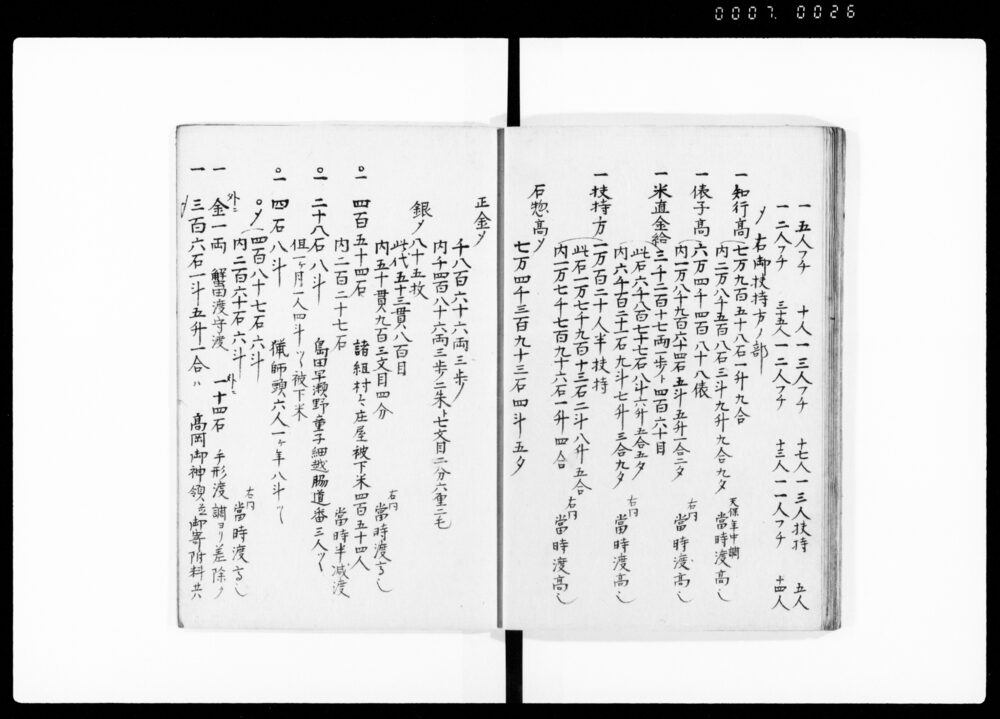 0007 0026
一 五人フチ 十人 一 三人フチ 十七人 一 三人扶持 五人
一 二人フチ 三十五人 一 二人フチ 十三人 一 一人フチ 十四人
〆 右御扶持方ノ部
一 知行高 七万九百五十八石一升九合
内二万八千五百八石三斗九升九合九夕 天保年中調 當時渡高し
一 俵子高 六万四千四百八十八俵
内一万八千九百六十四石五斗五升一合二夕 右同 當時渡高し
一 米直金給 三千二百十七両一歩ト四百六十目
此石六千八百七十七石八斗六升五合五夕
内六千百二十一石九斗七升三合九夕 右同 當時渡高し
一 扶持方 一万百二十人半扶持
此石一万七千九百十三石二斗八升五合
内一万七千七百九十六石一升四合 右同 當時渡高し
石惣高〆
七万四千三百九十三石四斗五夕
正金〆
千八百六十六両三歩
内千四百八十六両三歩二朱ト七文目二分六重二毛
銀〆 八十五枚
此代五十三貫八百目
内五十貫九百三文目四分 右同 當時渡高し
一 四百五十四石 諸組村々庄屋被下米四百五十四人
内二百二十七石 當時半減渡
一 二十八石八斗 島田早瀬野童子細越脇道番三人ツヽ
但一ケ月一人四斗ツヽ被下米
一 四石八斗 猟師頭六人一ケ年八斗ツヽ
〆 四百八十七石六斗
内二百六十石六斗 右同 當時渡高し
外ニ
一 金一両 蟹田渡守渡 外ニ 一 十四石 手形渡 調ヨリ差除ク
一 三百六石一斗五升一合ハ 高岡御神領並御寄附料共